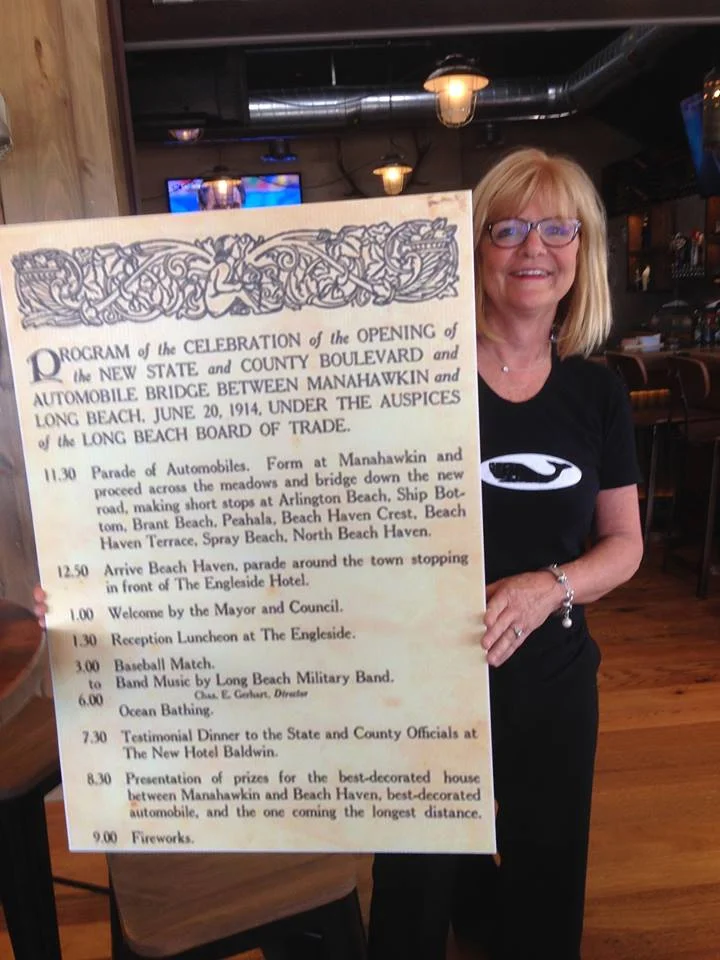 PROGRAM of the CELEBRATION of the OPENING of
the NEW STATE and COUNTY BOULEVARD and
AUTOMOBILE BRIDGE BETWEEN MANAHAWKIN and
LONG BEACH, JUNE 20, 1914, UNDER THE AUSPICES
of the LONG BEACH BOARD OF TRADE.
11.30 Parade of Automobiles. Form at Manahawkin and
proceed across the meadows and bridge down the new
road, making short stops at Arlington Beach, Ship Bot-
tom, Brant Beach, Peahala, Beach Haven Crest, Beach
Haven Terrace, Spray Beach, North Beach Haven.
12.50 Arrive Beach Haven, parade around the town stopping
in front of The Engleside Hotel.
1.00 Welcome by the Mayor and Council.
1.30 Reception Luncheon at The Engleside.
3.00 Baseball Match.
to Band Music by Long Beach Military Band.
6.00 Chas. E. Gerhart, Director
Ocean Bathing.
7.30 Testimonial Dinner to the State and County Officials at
The New Hotel Baldwin.
8.30 Presentation of prizes for the best-decorated house
between Manahawkin and Beach Haven, best-decorated
automobile, and the one coming the longest distance.
9.00 Fireworks.